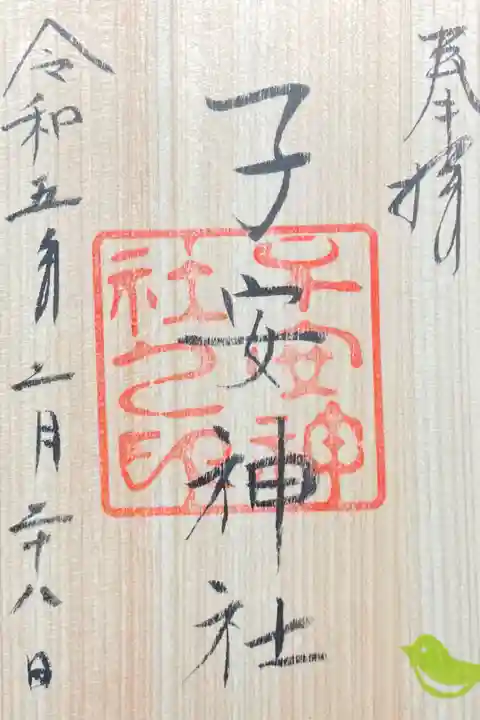 奉拝
子安神社
子安神社之印
令和五年二月二十八日